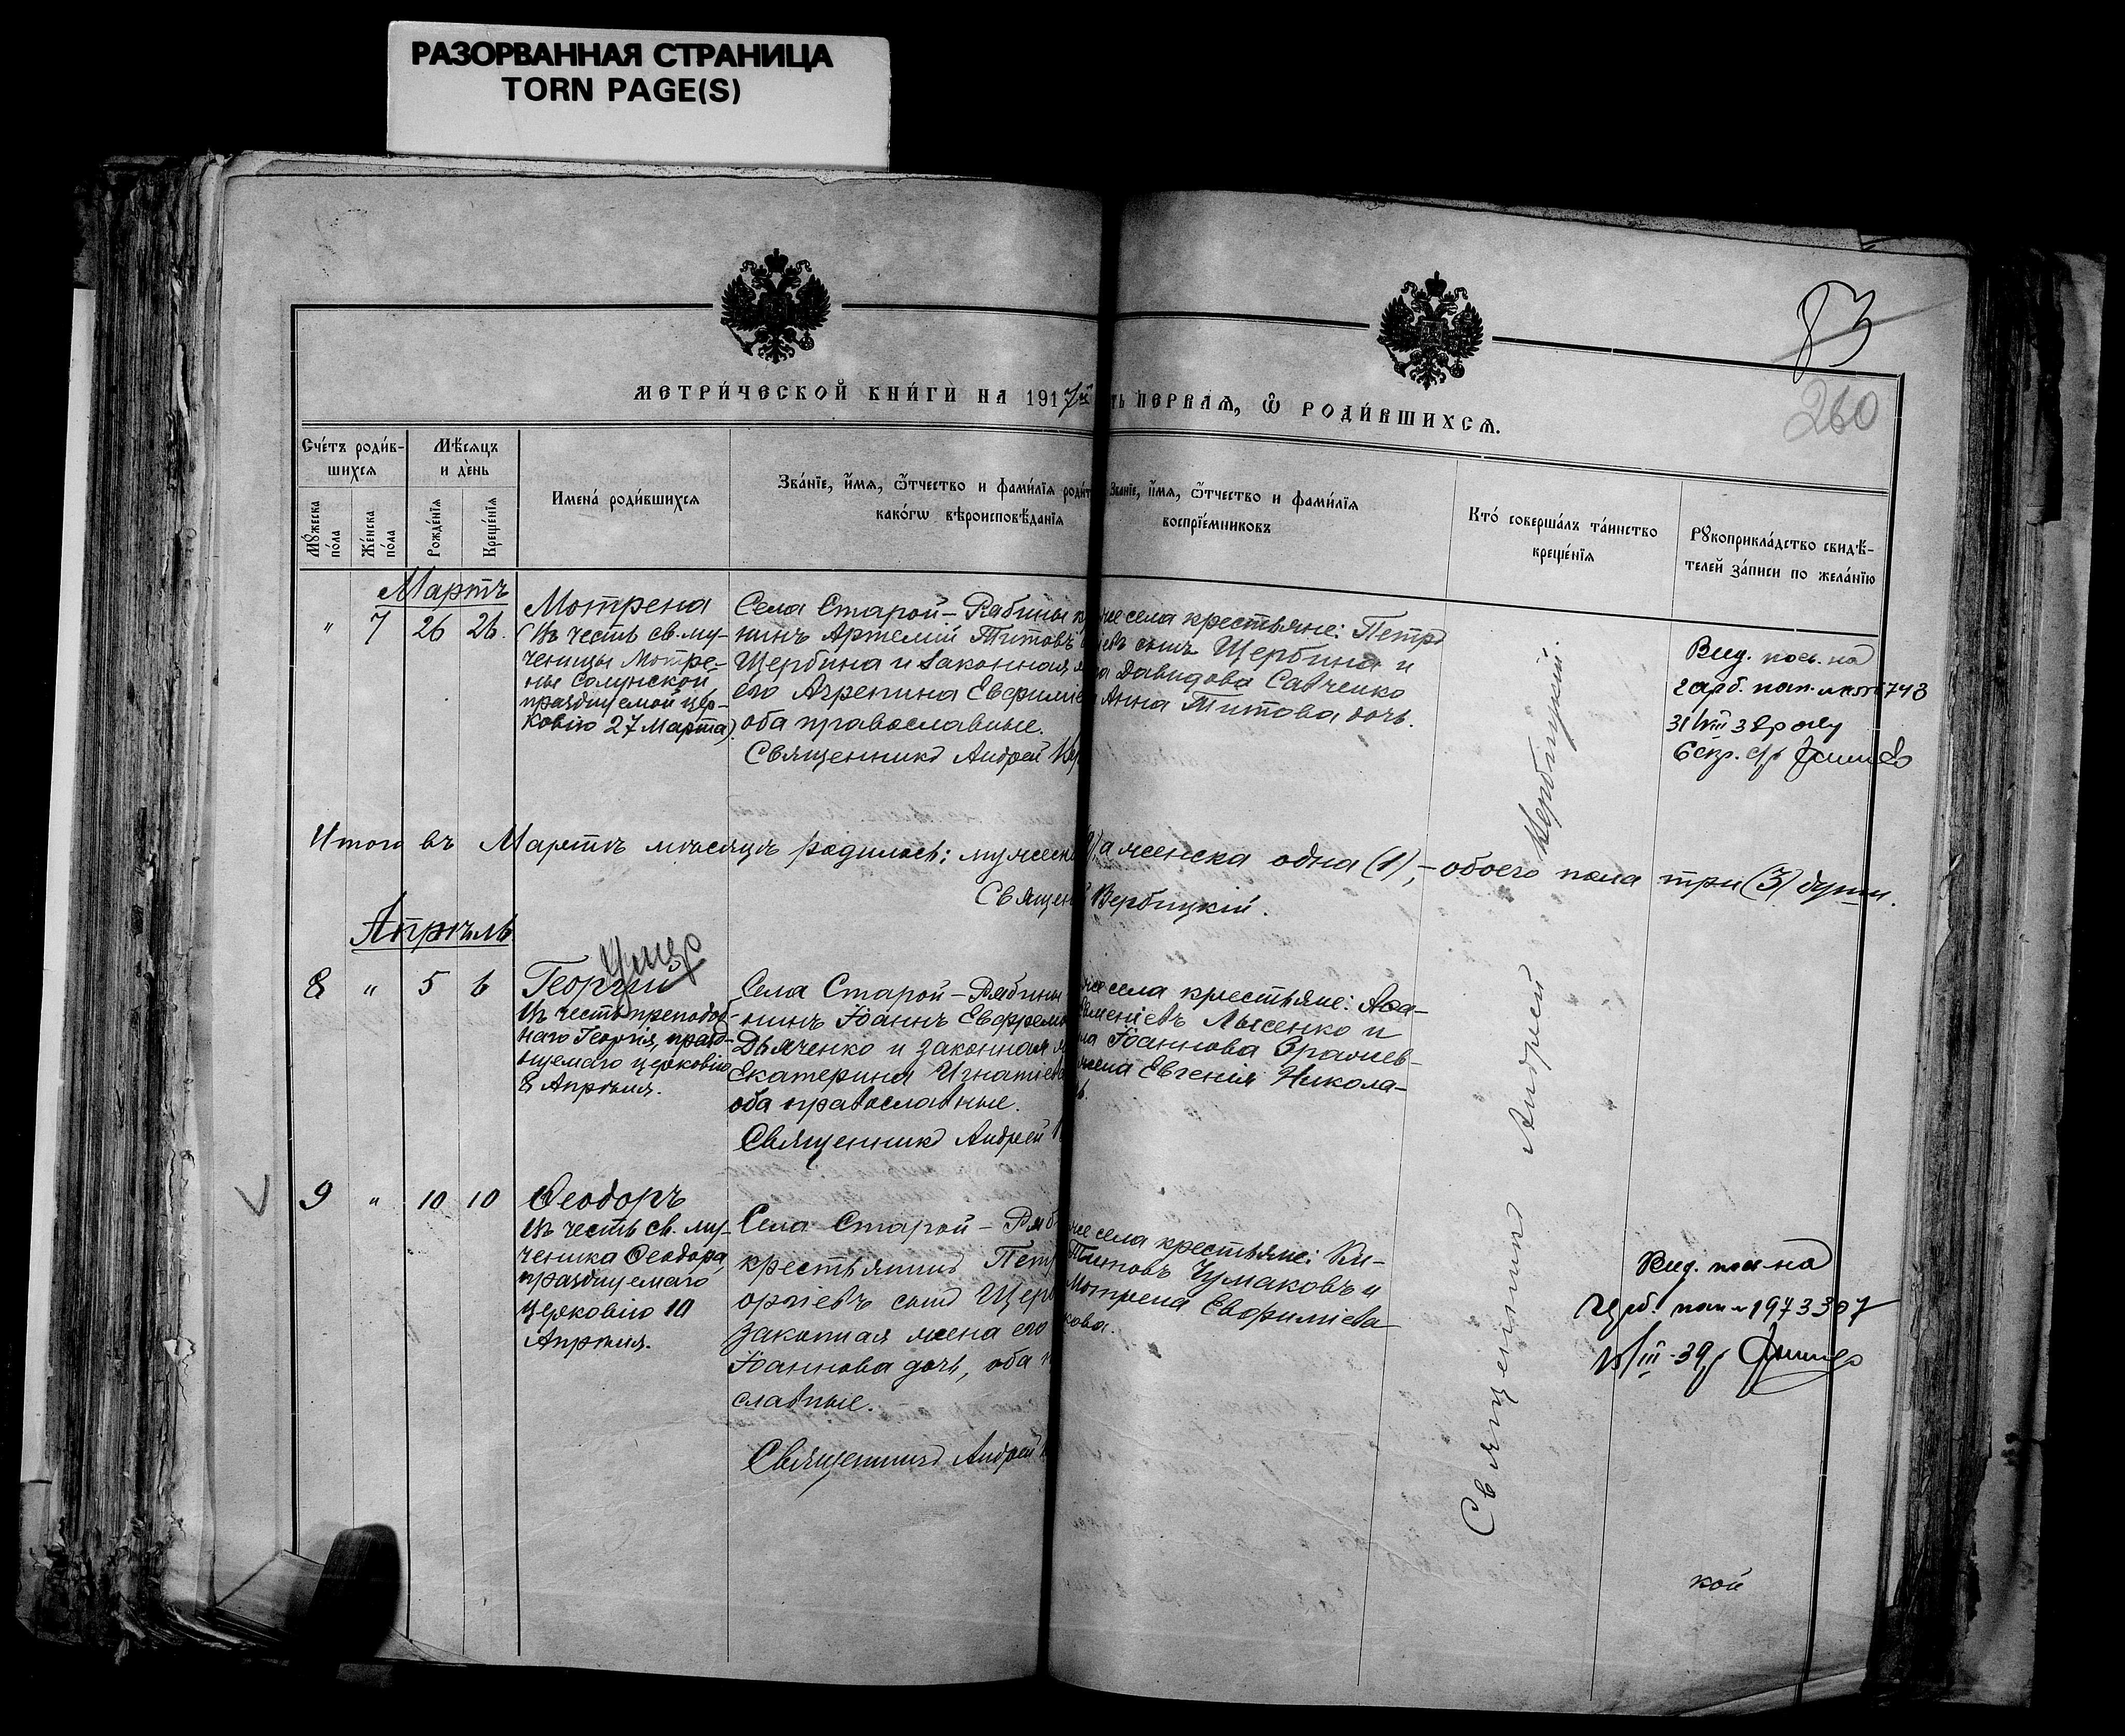 РАЗОРВАННАЯ СТРАНИЦА
TORN PAGE(S)
83
260
МЕТРИ́ЧЕСКОЙ КНИ́ГИ НА 1917й
ть ПЕРВАѦ, Ѡ҆ РОДИ́ВШИХСѦ.
Сче́тъ роди́в-
шихсѧ
Мꙋ́жеска по́ла
Же́нска по́ла
Мѣ́сѧцъ
и де́нь
Рожде́нїѧ
Креще́нїѧ
Имена́ роди́вшихсѧ
Зва́нїе, и҆́мѧ, ѻ҆́тчество и фами́лїѧ роди́т
како́гѡ вѣроисповѣ́данїѧ
Зва́нїе, и҆́мѧ, ѻ҆́тчество и фами́лїѧ
воспрїе́мниковъ
Кто́ соверша́лъ та́инство
креще́нїѧ
Рꙋкоприкла́дство свидѣ́-
телей за́писи по жела́нїю
Мартъ
" 7 26 26.
Мотрена
(Въ честь св. му-
ченицы Мотре-
ны Солунской,
празднуемой цер-
ковію 27 Марта)
Села Старой-Рябины к
нинъ Артемій Титовъ
Щербина и законная ж
его Агрепина Евфиміе
оба православные.
Священникъ Андрей Вер
же села крестьяне: Петръ
сынъ Щербина и
Давидова Савченко
Анна Титова дочь.
Вид. пос. на
743
Итого въ Мартѣ мѣсяцѣ родилось: мужеска
а женска одна (1), - обоего пола три (3) души.
Священ
Вербицкій.
Апрѣль
8 " 5 6
Георгій
Въ честь преподоб-
наго Георгія, празд-
нуемаго церковію
8 Апрѣля.
Села Старой-Рябины
нинъ Іоаннъ Ефремо
Дьяченко и законная ж
Екатерина Игнатіева
оба православные.
Священникъ Андрей
же села крестьяне: Аѳа-
Лысенко и
Іоаннова
жена Евгенія Никола-
9 " 10 10
Ѳеодоръ
Въ честь св. му-
ченика Ѳеодора,
празднуемаго
церковію 10
Апрѣля.
Села Старой-Ряб
крестьянинъ Пет
оргіевъ сынъ Щер
законная жена его
Іоаннова дочь, оба
славные.
Священникъ Андрей
же села крестьяне:
Титовъ Чумаковъ и
Мотрена Евфиміева
кова.
Вид. пос. на
Священникъ Андрей Вербицкій.
кой